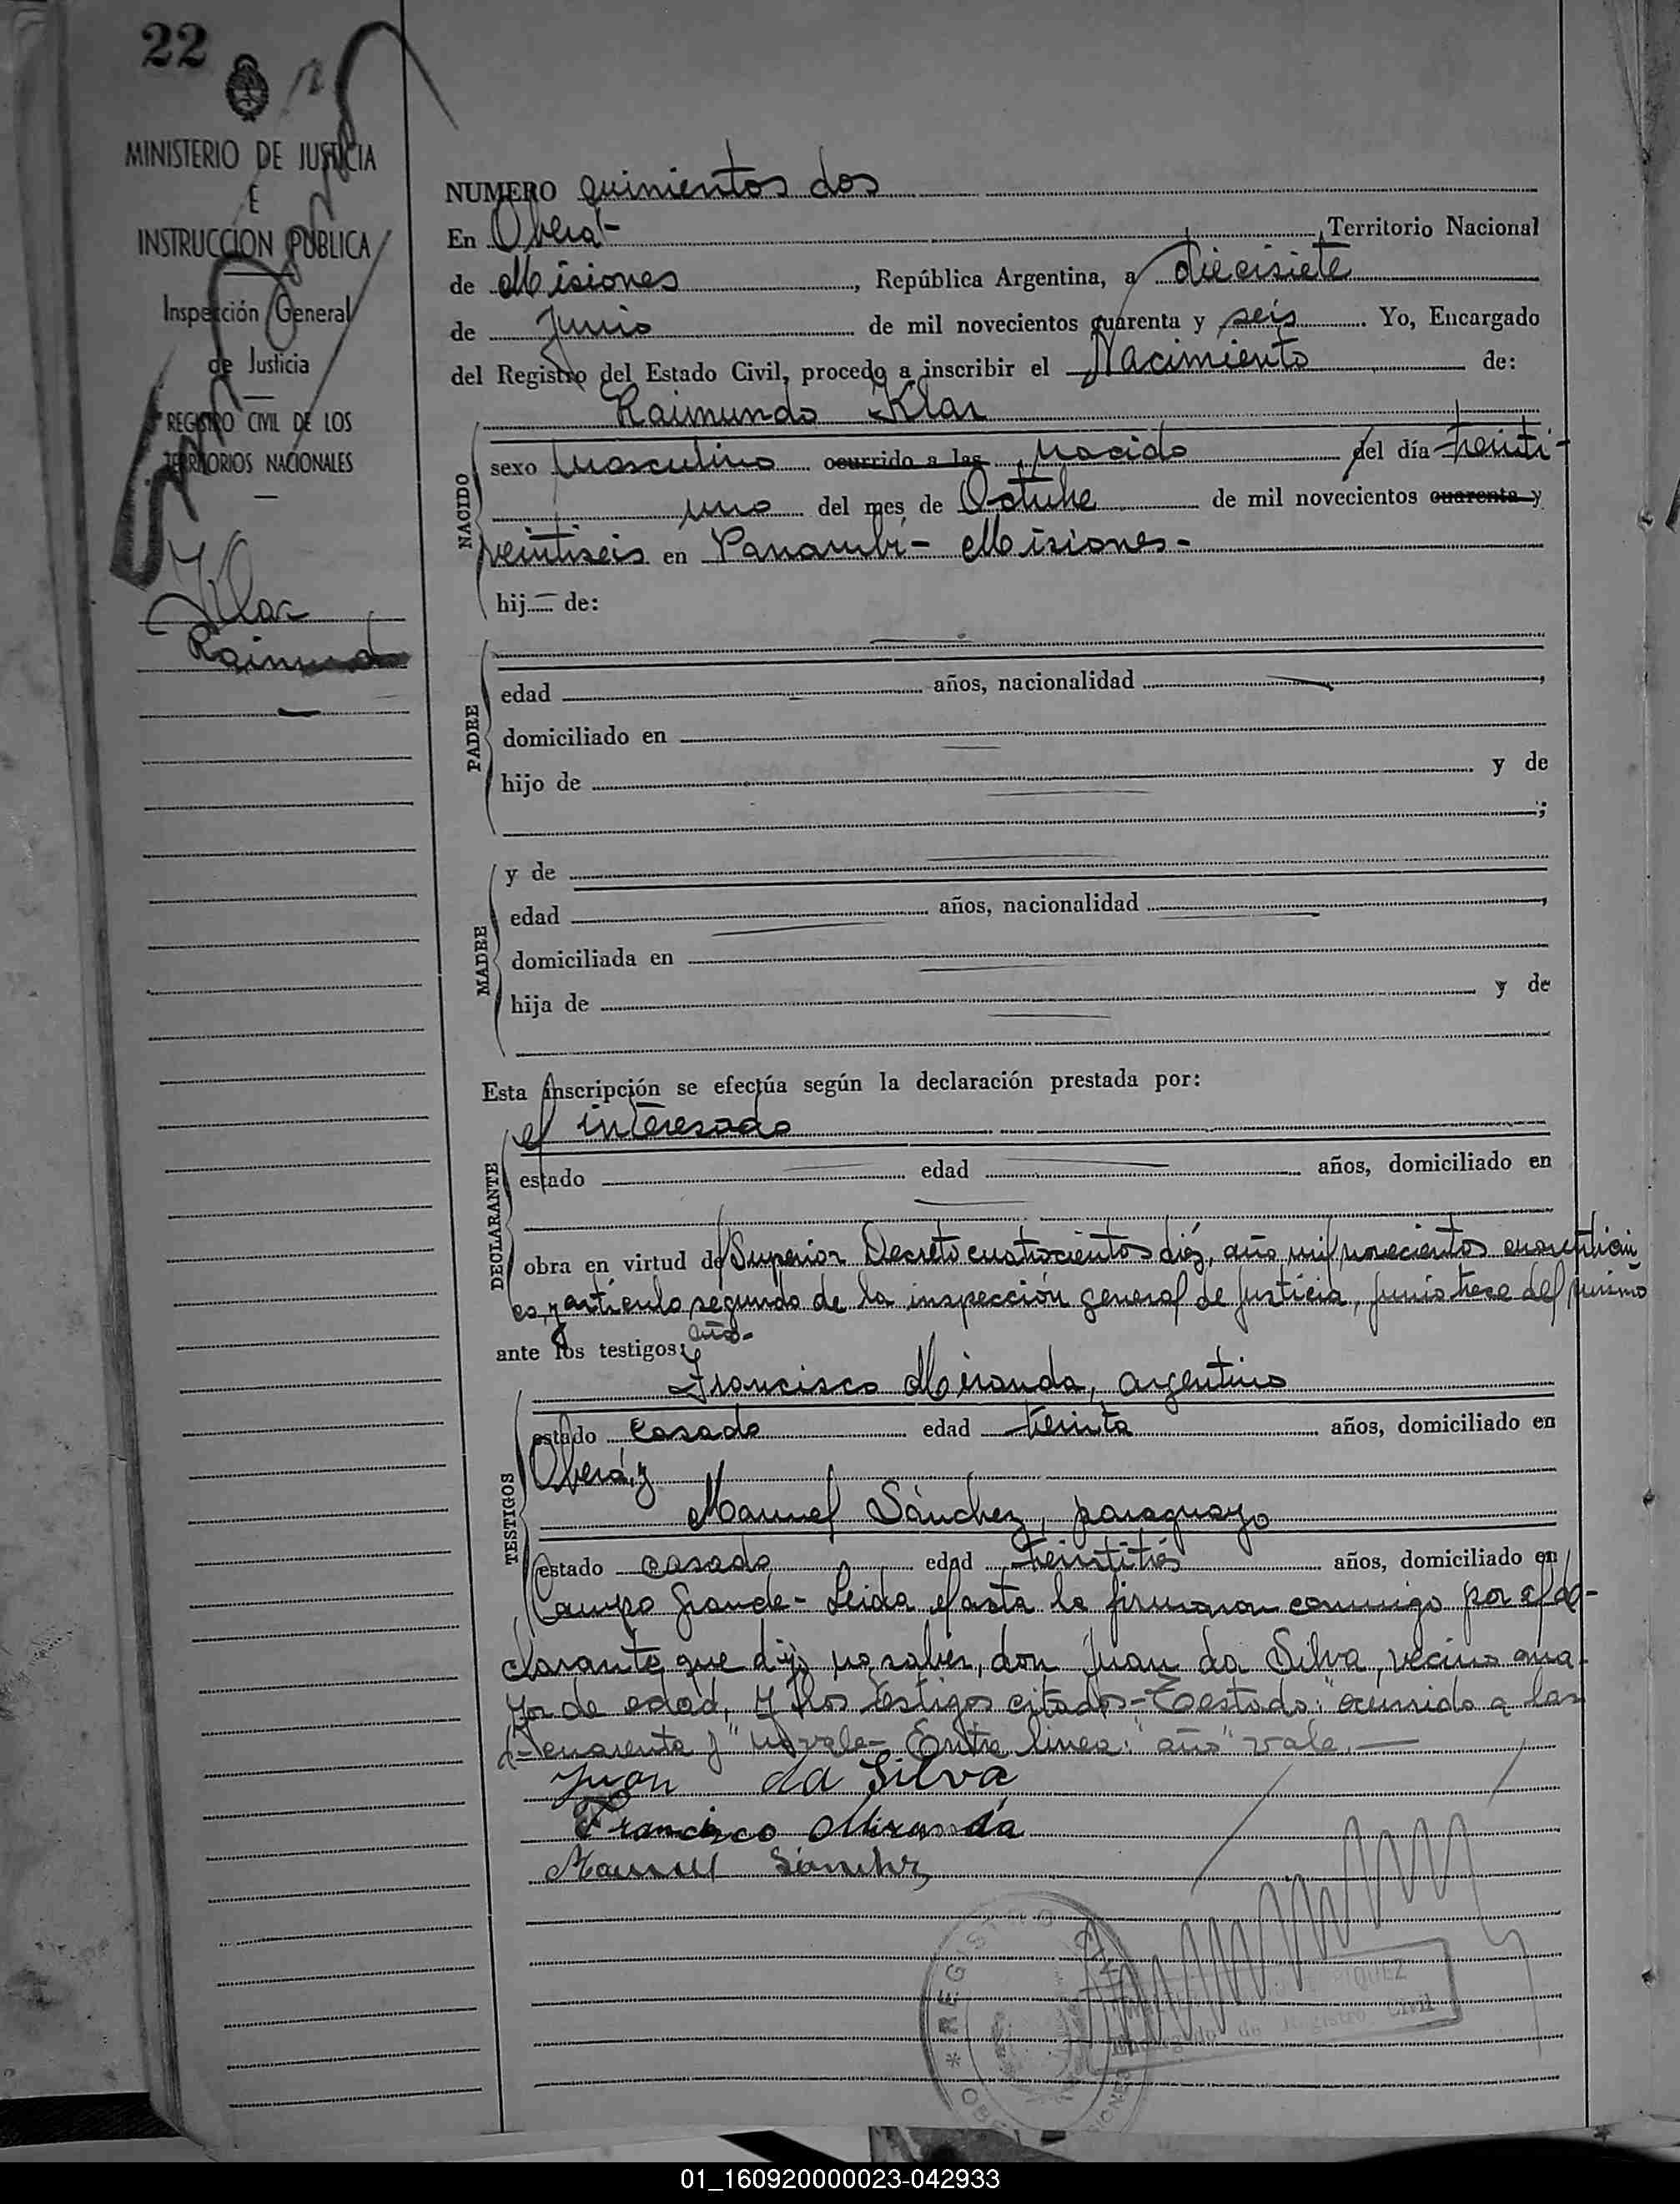 22
MINISTERIO DE JUSTICIA
E
INSTRUCCIÓN PÚBLICA
Inspección General
de Justicia
REGISTRO CIVIL DE LOS
TERRITORIOS NACIONALES
Klar
Raimundo
NUMERO quinientos dos
En Oberá- , Territorio Nacional
de Misiones , República Argentina, a diecisiete
de Junio de mil novecientos cuarenta y seis Yo, Encargado
del Registro del Estado Civil, procedo a inscribir el Nacimiento de:
Raimundo Klar
NACIDO
sexo masculino ocurrido a las nacido del día treinti-
uno del mes de Octubre de mil novecientos cuarenta y
veintiseis en Panambí- Misiones-
hij de:
PADRE
edad años, nacionalidad ,
domiciliado en
hijo de y de
;
MADRE
y de
edad años, nacionalidad ,
domiciliada en
hija de y de
Esta inscripción se efectúa según la declaración prestada por:
DECLARANTE
el interesado
estado edad años, domiciliado en
obra en virtud del Superior Decreto cuatrocientos diez, año mil novecientos cuarenticin
co, y artículo segundo de la inspección general de justicia, junio trece del mismo
año-
ante los testigos:
TESTIGOS
Francisco Miranda, argentino
estado casado edad treinta años, domiciliado en
Oberá, y
Manuel Sánchez, paraguayo
estado casado edad treintitrés años, domiciliado en
Campo Grande- Leida el acta la firmaron conmigo por el de-
clarante, que dijo no saber, don Juan da Silva, vecino ma-
yor de edad, y los testigos citados- Testado: "ocurrido a las
d- cuarenta y" no vale- Entre linea: "año" vale.-
Juan da Silva
Francisco Miranda
Manuel Sanchez
* REGISTRO CIVIL
Encargado de Registro Civil
01_160920000023-042933